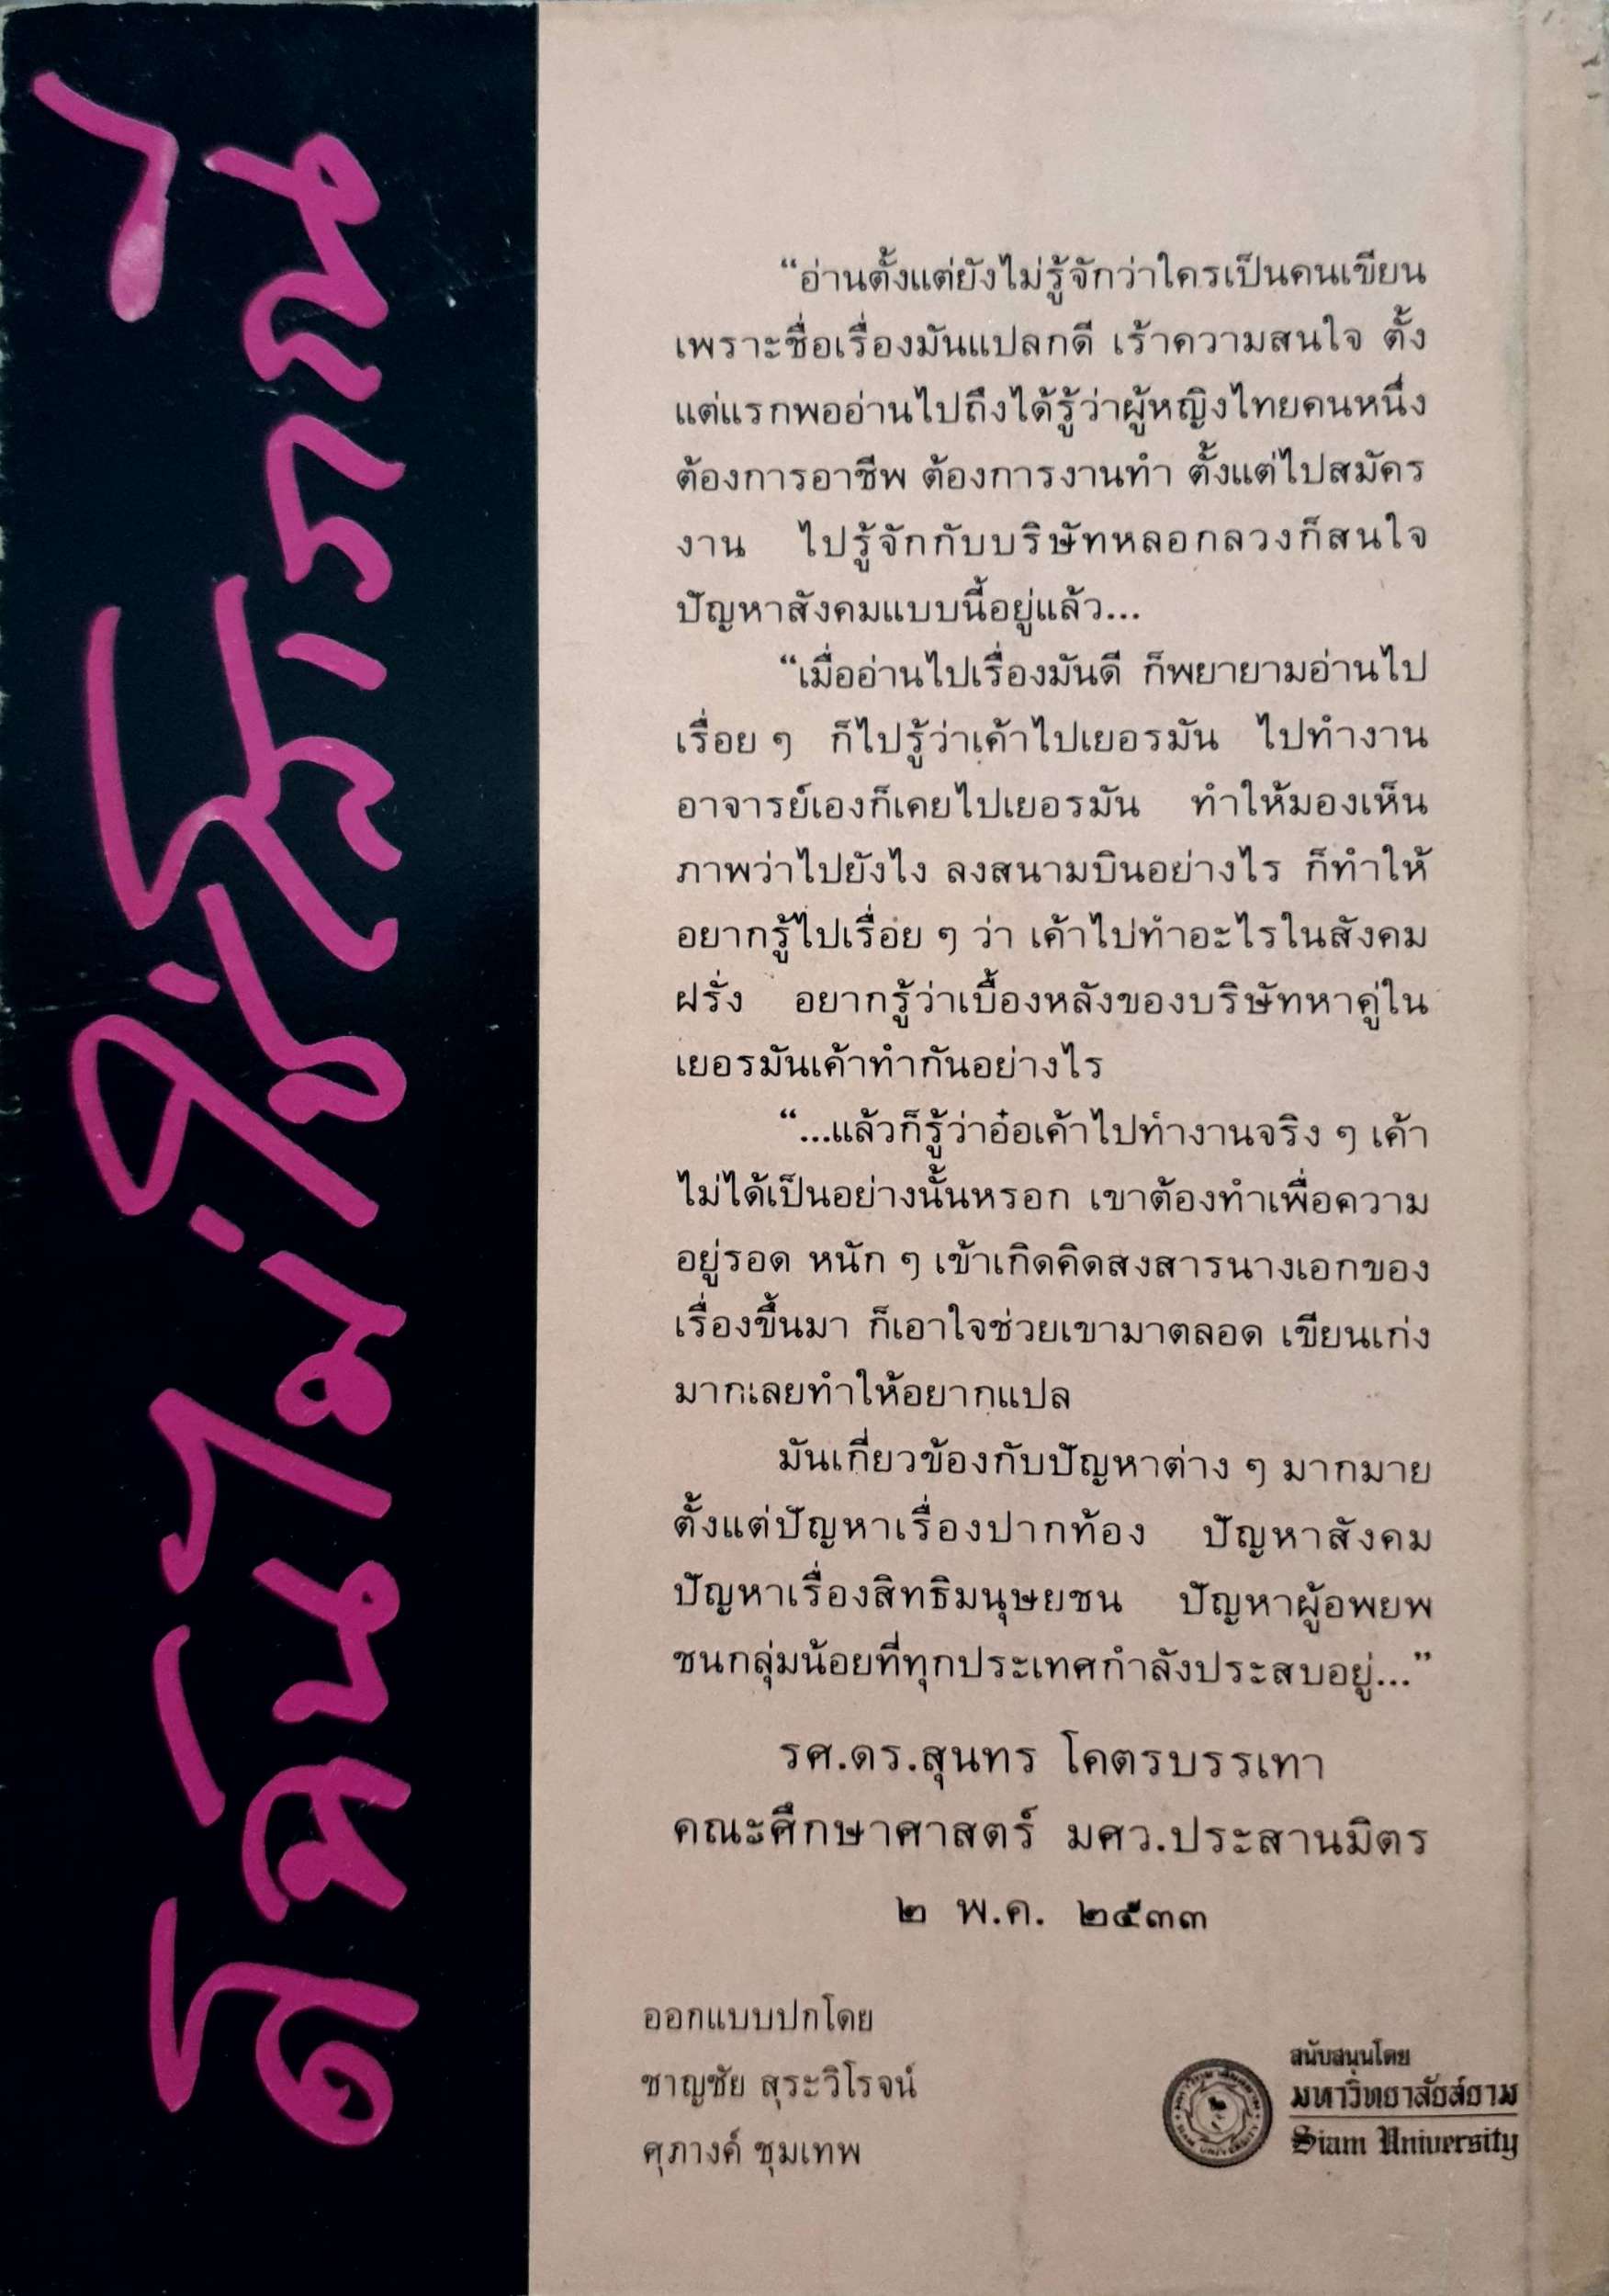 ดิฉันไม่ใช่โสเภณี
“อ่านตั้งแต่ยังไม่รู้จักว่าใครเป็นคนเขียน
เพราะชื่อเรื่องมันแปลกดี เร้าความสนใจ ตั้ง
แต่แรกพออ่านไปถึงได้รู้ว่าผู้หญิงไทยคนหนึ่ง
ต้องการอาชีพ ต้องการงานทำ ตั้งแต่ไปสมัคร
งาน ไปรู้จักกับบริษัทหลอกลวงก็สนใจ
ปัญหาสังคมแบบนี้อยู่แล้ว...
“เมื่ออ่านไปเรื่องมันดี ก็พยายามอ่านไป
เรื่อย ๆ ก็ไปรู้ว่าเค้าไปเยอรมัน ไปทำงาน
อาจารย์เองก็เคยไปเยอรมัน ทำให้มองเห็น
ภาพว่าไปยังไง ลงสนามบินอย่างไร ก็ทำให้
อยากรู้ไปเรื่อย ๆ ว่า เค้าไปทำอะไรในสังคม
ฝรั่ง อยากรู้ว่าเบื้องหลังของบริษัทหาคู่ใน
เยอรมันเค้าทำกันอย่างไร
“...แล้วก็รู้ว่าอ๋อเค้าไปทำงานจริง ๆ เค้า
ไม่ได้เป็นอย่างนั้นหรอก เขาต้องทำเพื่อความ
อยู่รอด หนัก ๆ เข้าเกิดคิดสงสารนางเอกของ
เรื่องขึ้นมา ก็เอาใจช่วยเขามาตลอด เขียนเก่ง
มากเลยทำให้อยากแปล
มันเกี่ยวข้องกับปัญหาต่าง ๆ มากมาย
ตั้งแต่ปัญหาเรื่องปากท้อง ปัญหาสังคม
ปัญหาเรื่องสิทธิมนุษยชน ปัญหาผู้อพยพ
ชนกลุ่มน้อยที่ทุกประเทศกำลังประสบอยู่...”
รศ.ดร.สุนทร โคตรบรรเทา
คณะศึกษาศาสตร์ มศว.ประสานมิตร
๒ พ.ค. ๒๕๓๓
ออกแบบปกโดย
ชาญชัย สุระวิโรจน์
ศุภางค์ ชุมเทพ
สนับสนุนโดย
มหาวิทยาลัยสยาม
Siam University